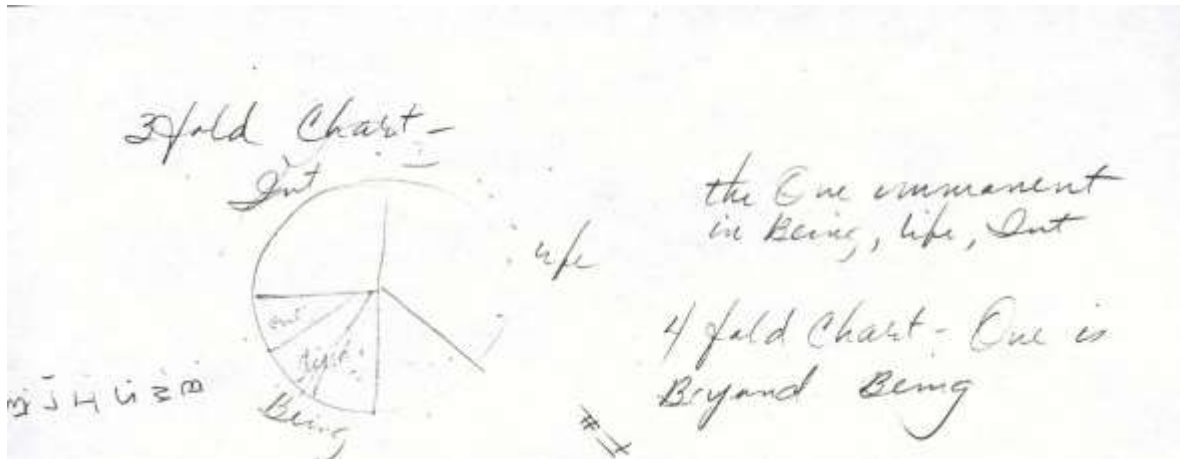 3 fold Chart -
Int
life
Being
the One immanent
in Being, life, Int
4 fold Chart - One is
Beyond Being